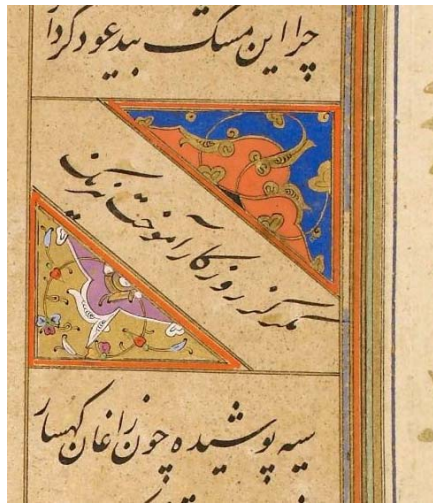 چرا این مسک بید عود کردار
مگر کز روزگار آموخت نیرنگ
سیه پوشیده چون زاغان کهسار